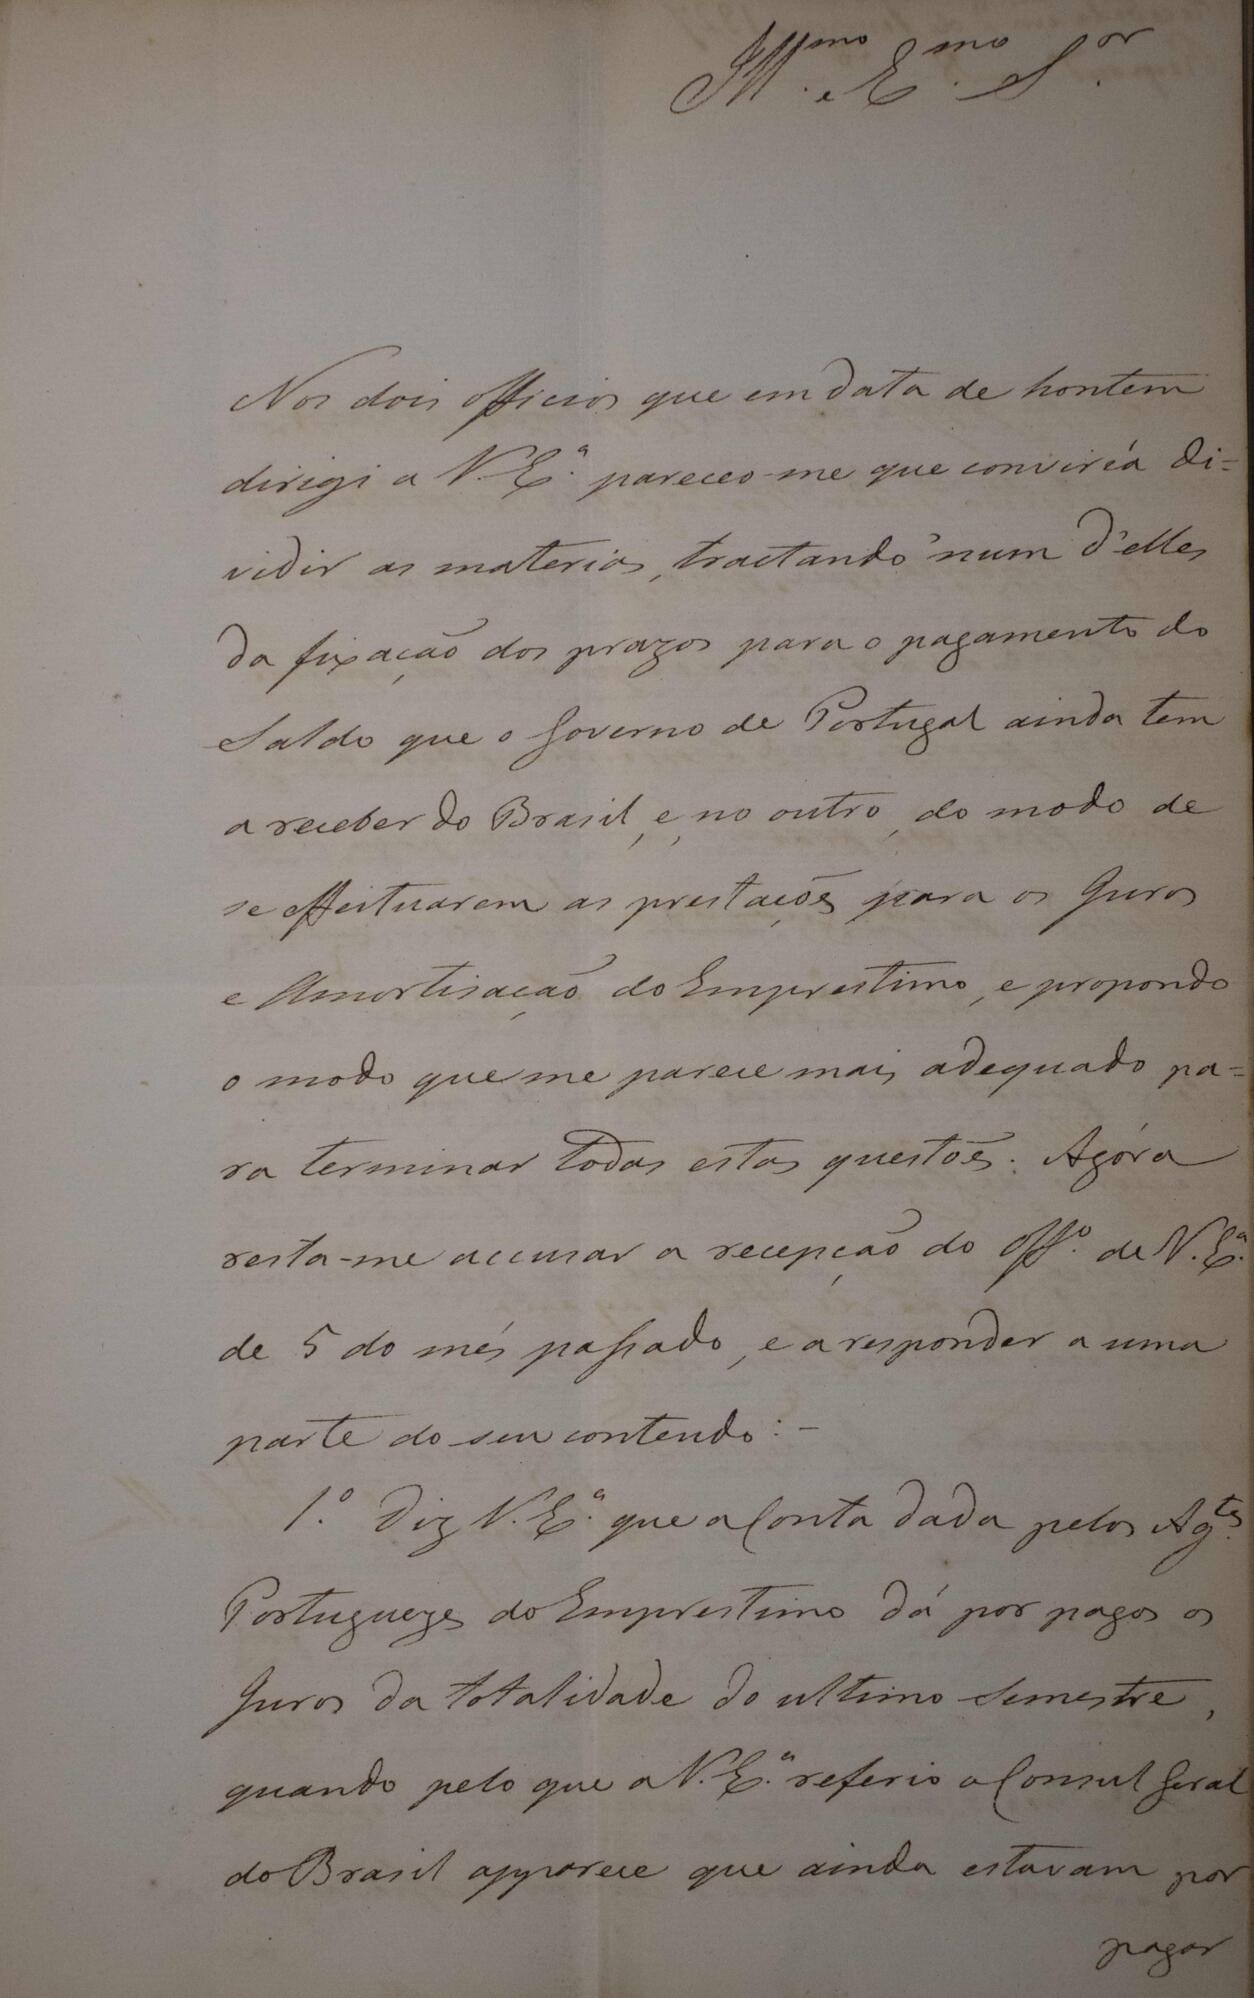 Ill.mo e E.mo S.or
Nos dois officios que em data de hontem
dirigi a V. E.ª pareceo-me que conviría di=
vidir as materias, tractando n'um d'elles
da fixação dos prazos para o pagamento do
Saldo que o Governo de Portugal ainda tem
a receber do Brasil, e, no outro, do modo de
se effeituarem as prestações para os Juros
e Amortisação do Emprestimo, e propondo
o modo que me parece mais adequado pa=
ra terminar todas estas questões. Agóra
resta-me accusar a recepção do Off.º de V. E.ª
de 5 do més passado, e a responder a uma
parte do seu contendo: -
1.º Diz V. E.ª que a Conta dada pelos Ag.tes
Portuguezes do Emprestimo dá por pagos os
Juros da totalidade do ultimo Semestre,
quando pelo que a V. E.ª referio o Consul Geral
do Brasil apparece que ainda estavam por
pagar